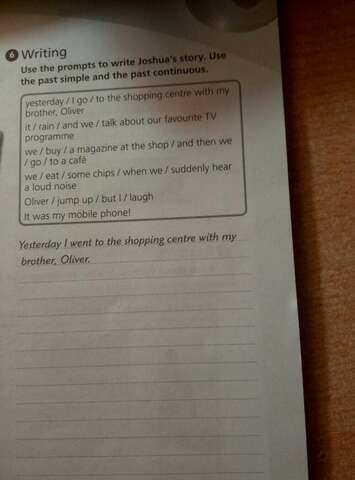 6 Writing
Use the prompts to write Joshua's story. Use
the past simple and the past continuous.
yesterday / I go / to the shopping centre with my
brother, Oliver
it / rain / and we / talk about our favourite TV
programme
we / buy / a magazine at the shop / and then we
/ go / to a café
we / eat / some chips / when we / suddenly hear
a loud noise
Oliver / jump up / but I / laugh
It was my mobile phone!
Yesterday I went to the shopping centre with my
brother, Oliver.